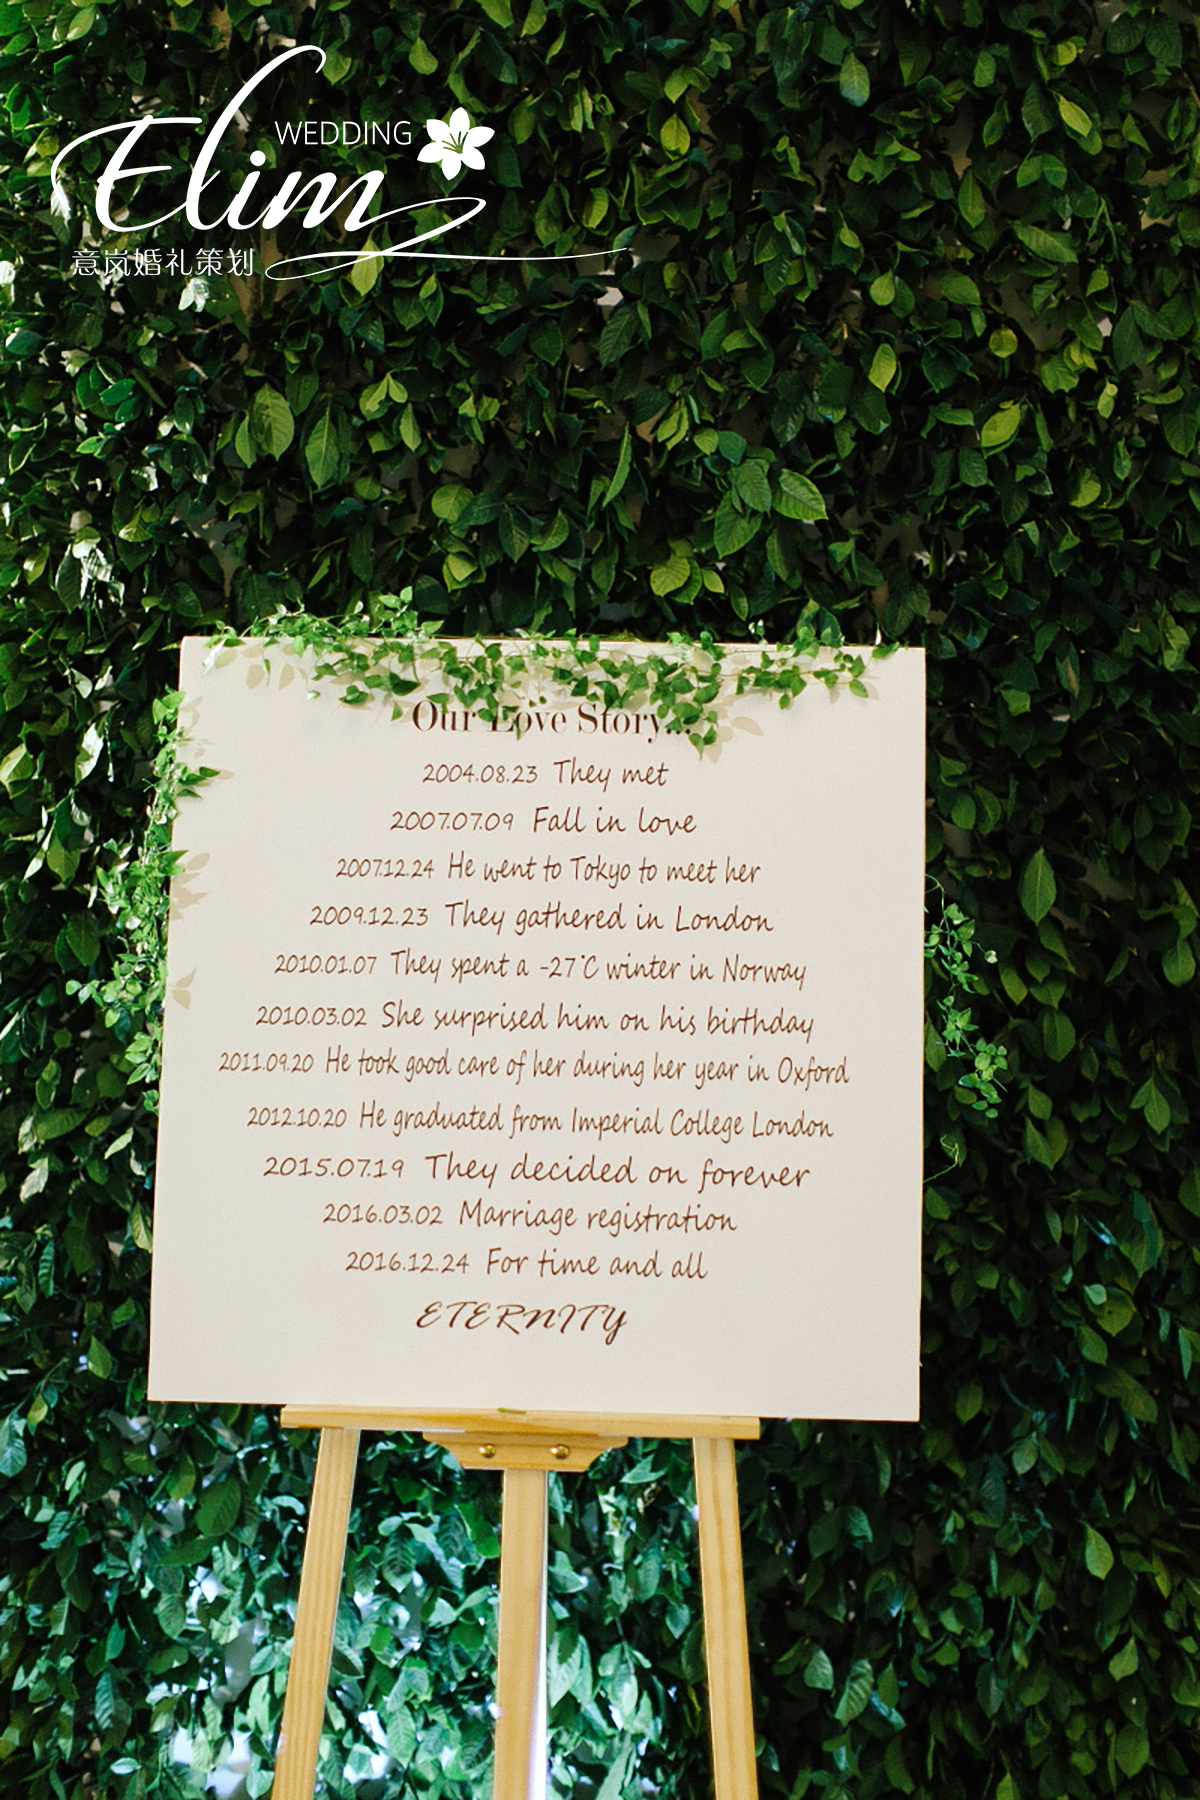 WEDDING
Elim
意岚婚礼策划
Our Love Story...
2004.08.23 They met
2007.07.09 Fall in love
2007.12.24 He went to Tokyo to meet her
2009.12.23 They gathered in London
2010.01.07 They spent a -27°C winter in Norway
2010.03.02 She surprised him on his birthday
2011.09.20 He took good care of her during her year in Oxford
2012.10.20 He graduated from Imperial College London
2015.07.19 They decided on forever
2016.03.02 Marriage registration
2016.12.24 For time and all
ETERNITY